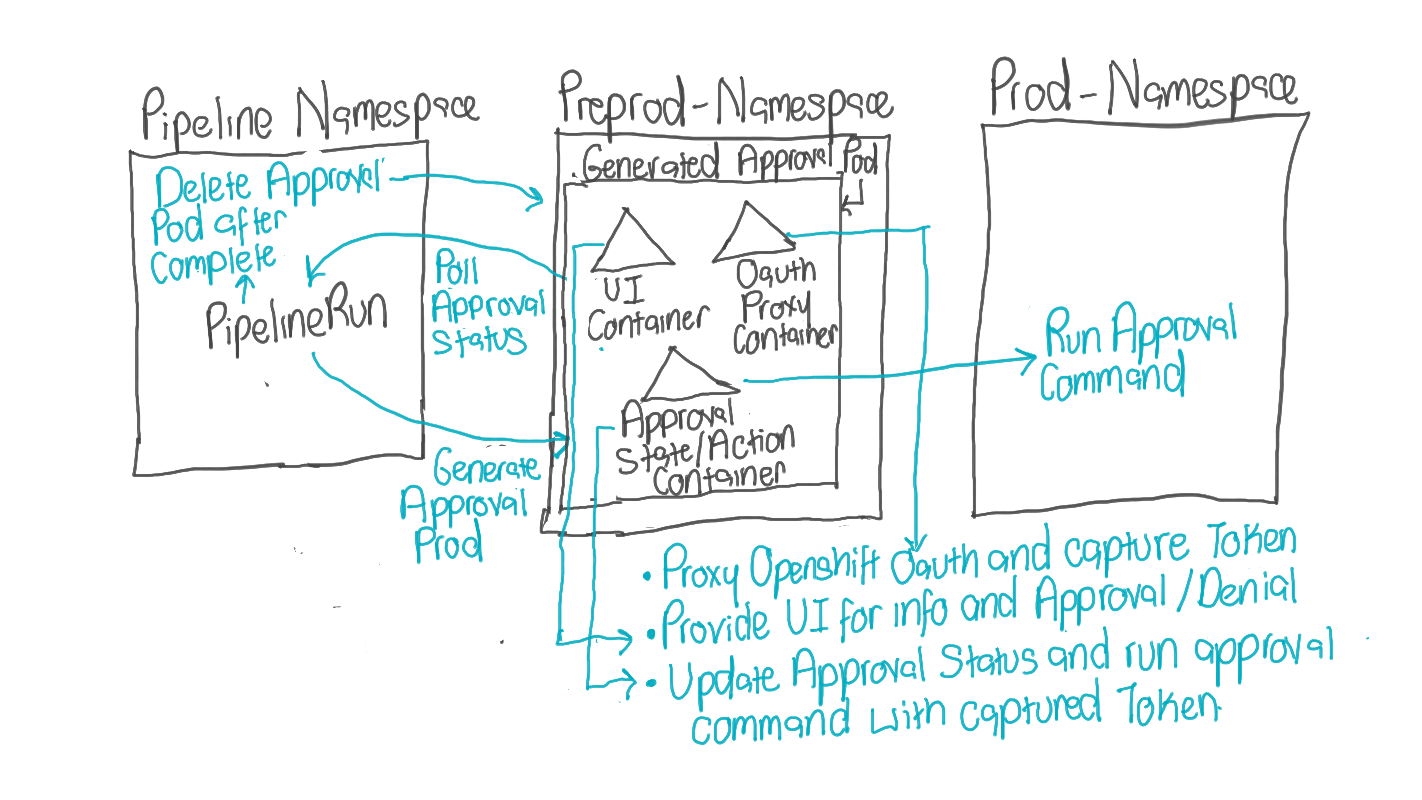 Pipeline Namespace
Delete Approval
Pod after
Complete
PipelineRun
Poll
Approval
Status
Generate
Approval
Prod
Preprod-Namespace
Generated Approval Pod
UI
Container
Oauth
Proxy
Container
Approval
State/Action
Container
Prod-Namespace
Run Approval
Command
• Proxy Openshift Oauth and capture Token
• Provide UI for info and Approval/Denial
• Update Approval Status and run approval
command with captured Token.